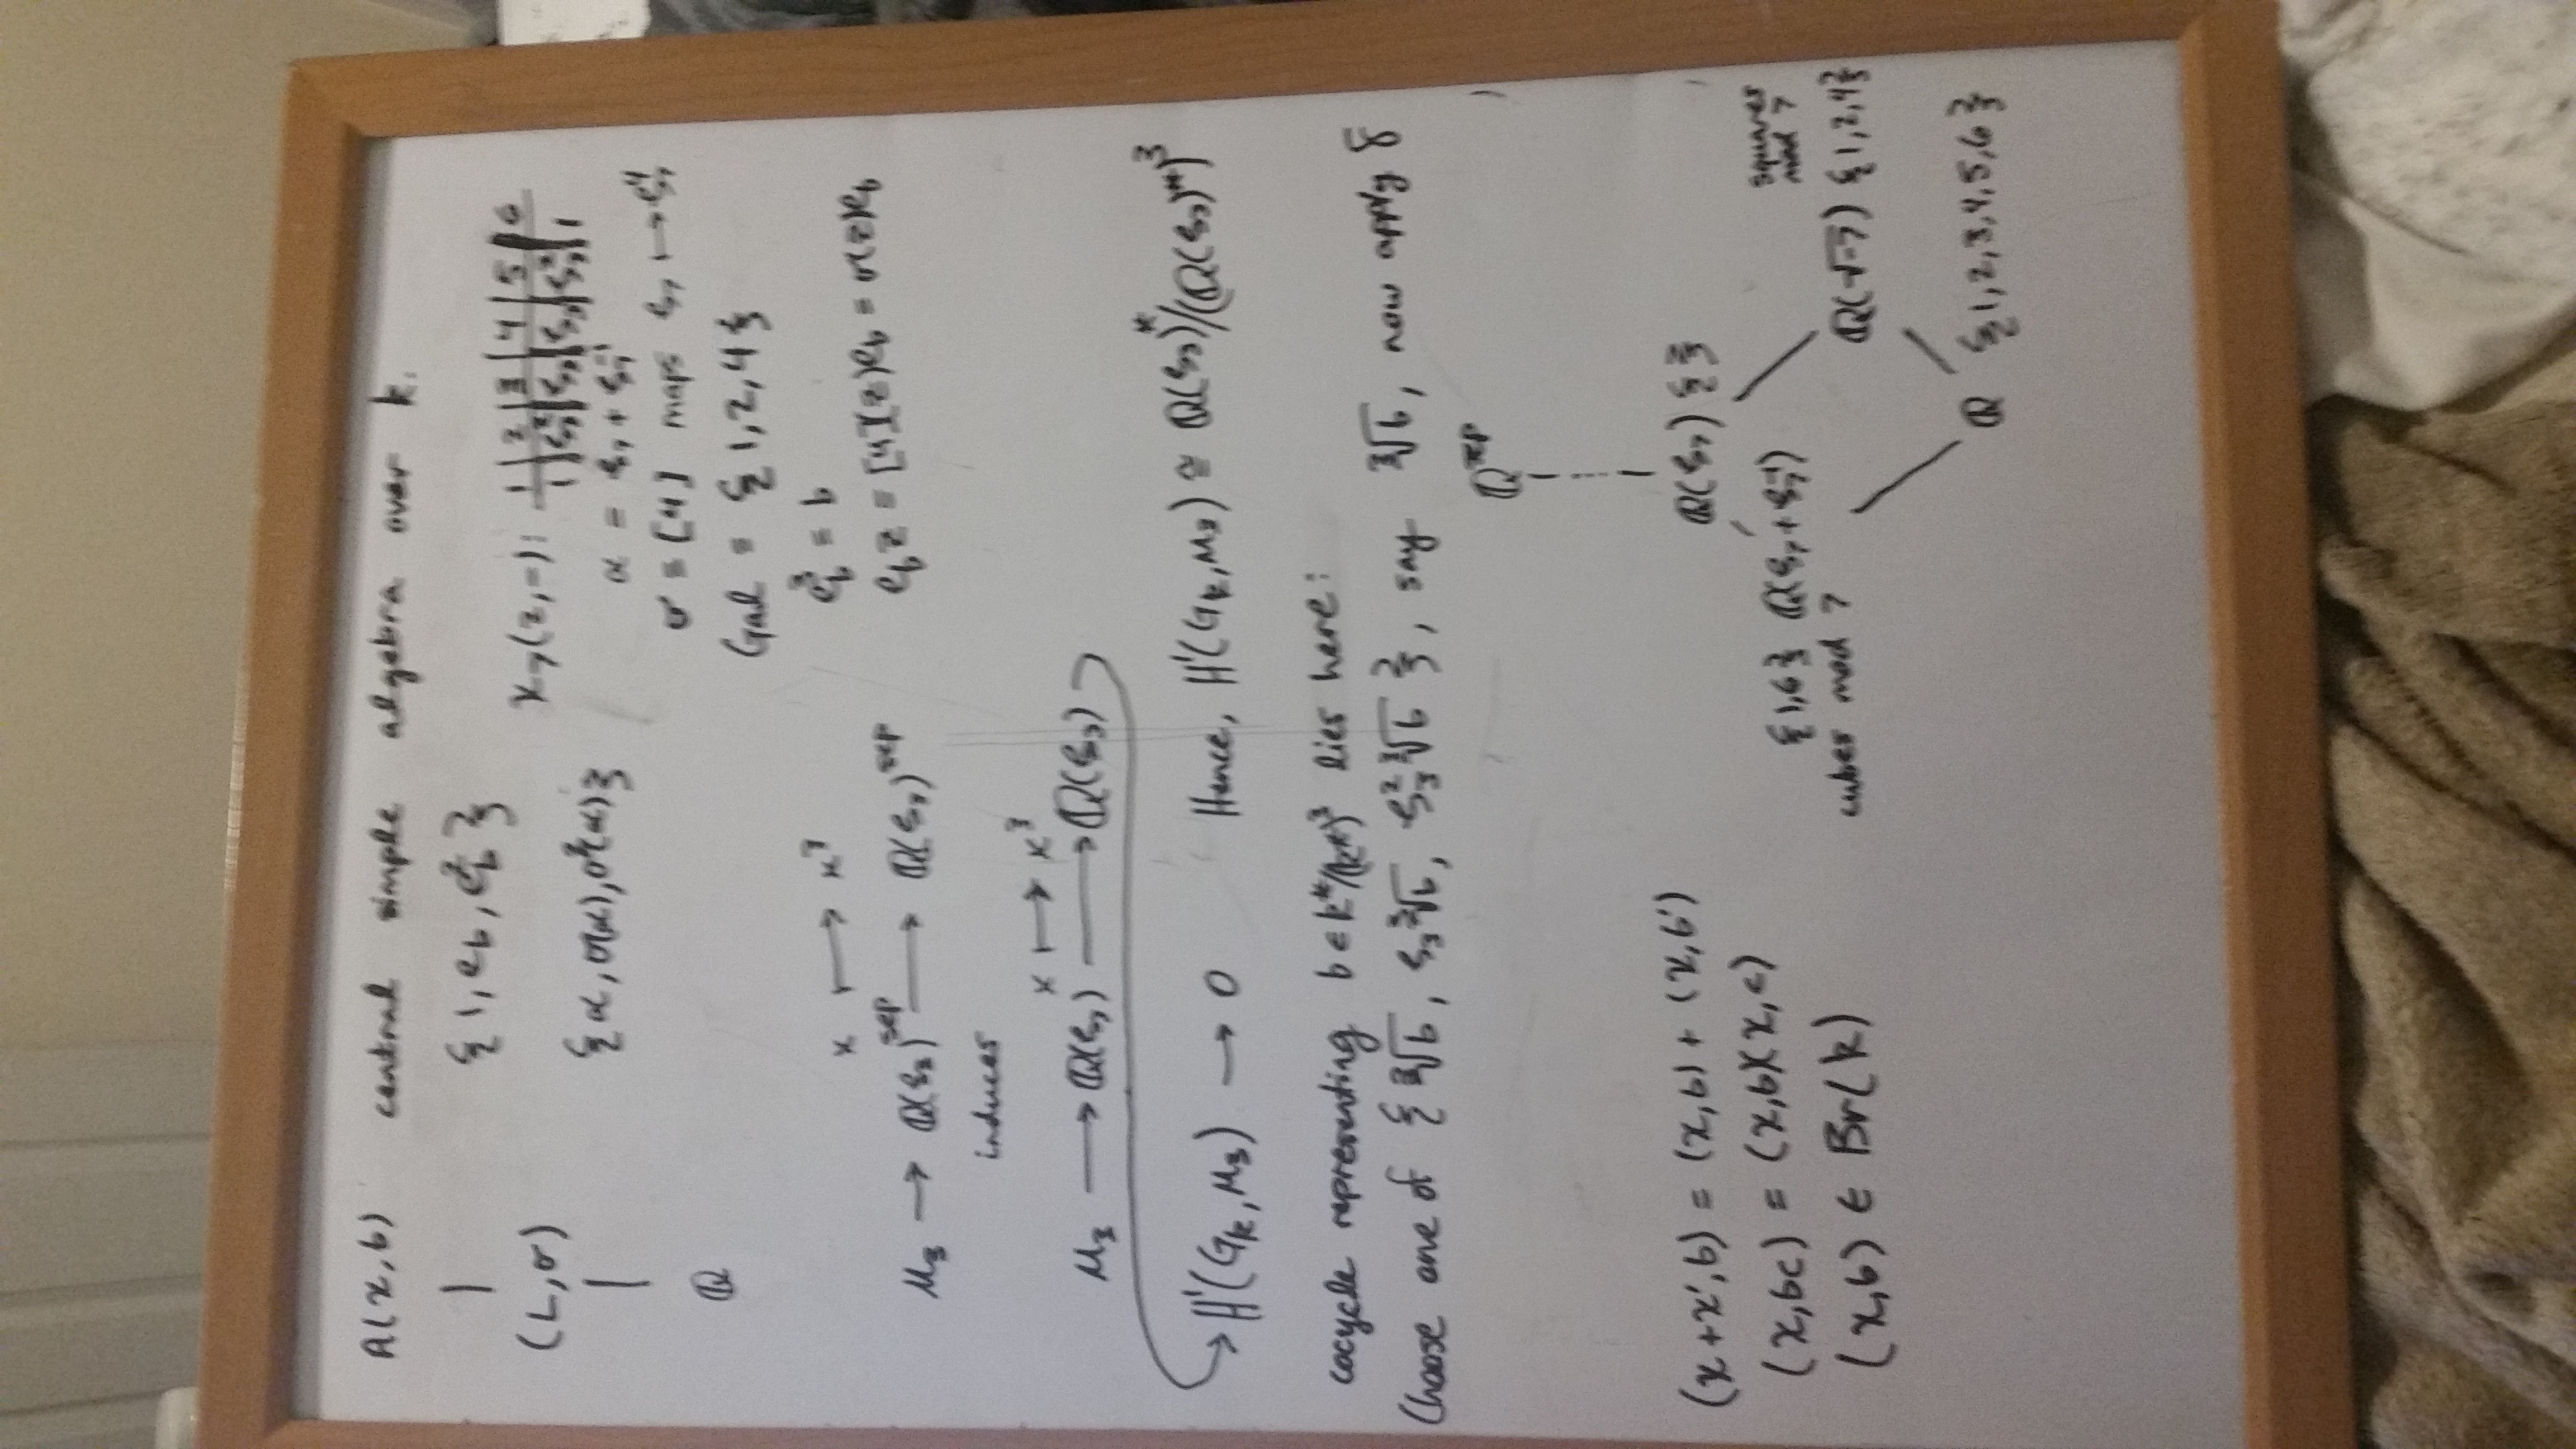 A(χ,b) central simple algebra over k.
|
{1, e_b, e_b^2}
(L,σ)
|
{α, σ(α), σ^2(α)}
Q
χ_7(2,-): 1 | 2 | 3 | 4 | 5 | 6
1 | ζ_3^2 | ζ_3 | ζ_3 | ζ_3^2 | 1
α = ζ_7 + ζ_7^{-1}
σ = [4] maps ζ_7 ↦ ζ_7^4
Gal = {1,2,4}
e_b^3 = b
e_b z = [4](z)e_b = σ(z)e_b
x ⟼ x^3
μ_3 → Q(ζ_3)^sep → Q(ζ_3)^sep
induces
x ⟼ x^3
μ_3 → Q(ζ_3) → Q(ζ_3)
H^1(G_k, μ_3) → 0 Hence, H^1(G_k, μ_3) ≅ Q(ζ_3)^*/(Q(ζ_3)^*)^3
cocycle representing b ∈ k^*/(k^*)^3 lies here:
Choose one of {∛b, ζ_3∛b, ζ_3^2∛b}, say ∛b, now apply δ
Q^sep
Q(ζ_7) {}
{1,6} Q(ζ_7+ζ_7^{-1})
cubes mod 7
squares
mod 7
Q(√-7) {1,2,4}
Q {1,2,3,4,5,6}
(χ+χ',b) = (χ,b) + (χ,b')
(χ,bc) = (χ,b)(χ,c)
(χ,b) ∈ Br(k)